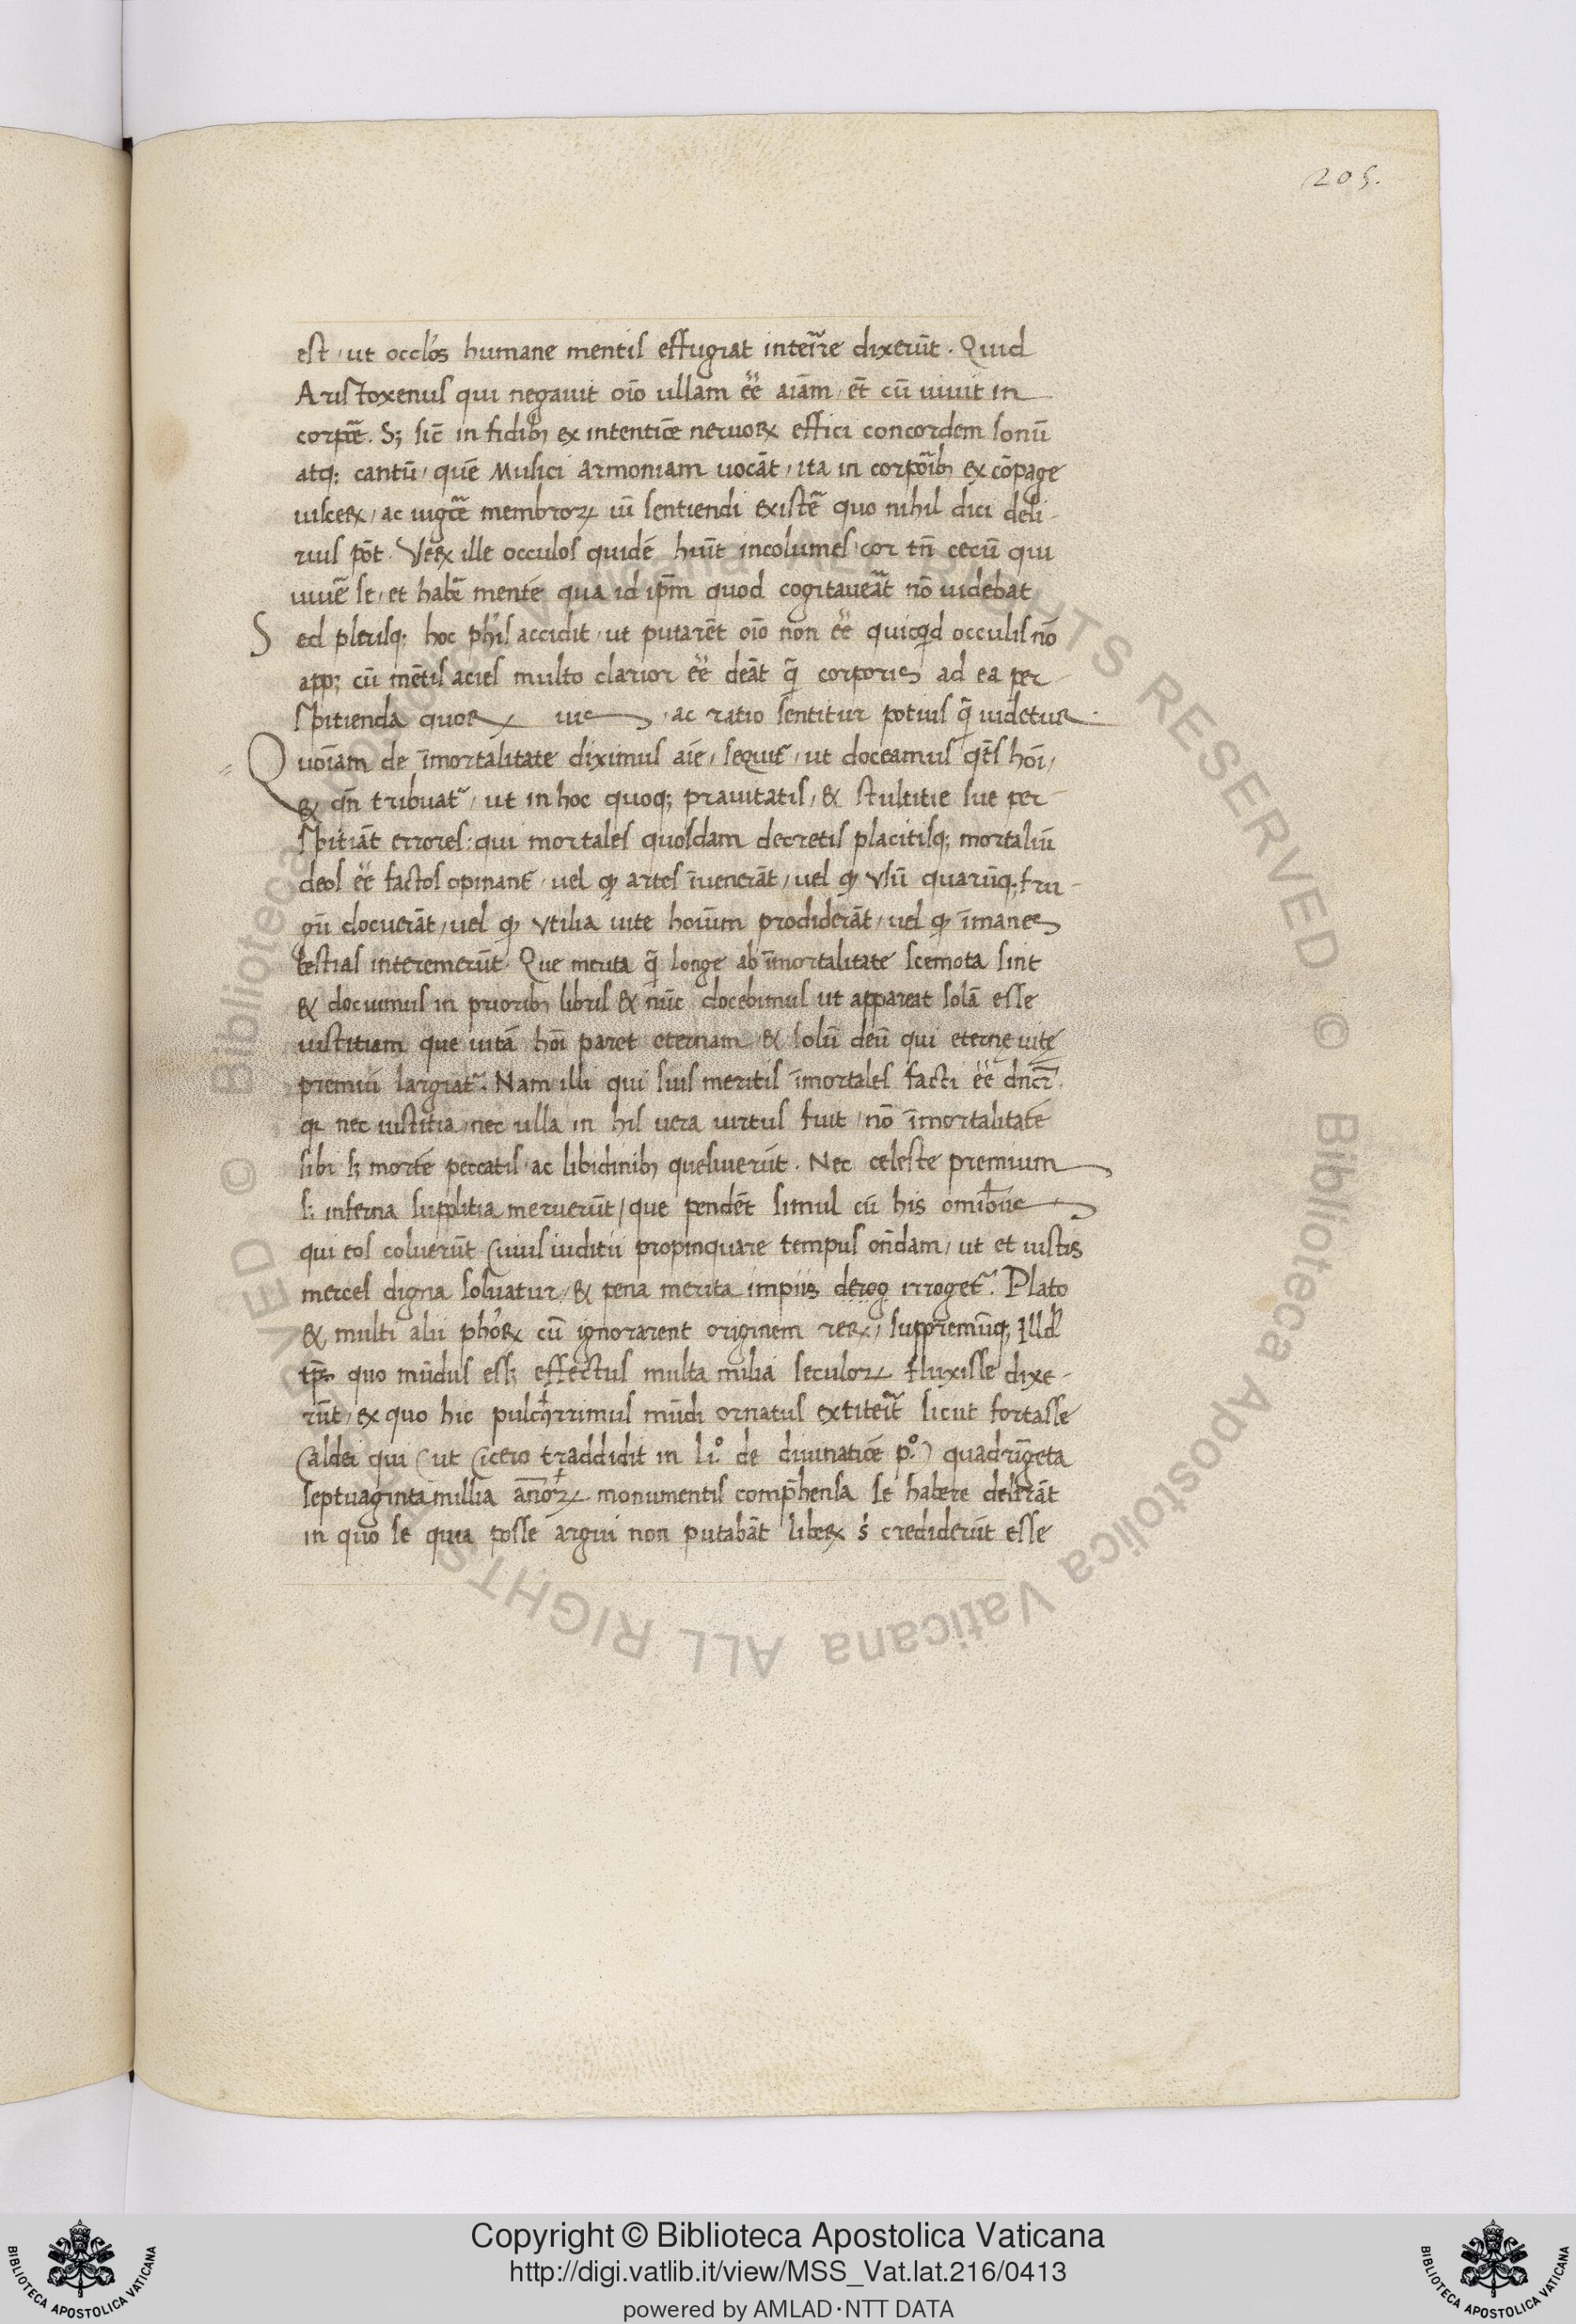 205.
est, ut occl'os humane mentis effugiat interĩre dixerũt. Quid
Aristoxenus qui negavit oĩo ullam ẽẽ aĩam, ẽt cũ vivit in
corpẽ. S; sic̃ in fidib; ex intentiõe nervoꝝ effici concordem sonũ
atq; cantũ, quẽ Musici armoniam vocãt, ita in corpoĩb; ex cõpage
visceꝝ, ac vigoẽ membroꝝ vĩ sentiendi existẽ quo nihil dici deli-
rius põt. Veꝝ ille occulos quidẽ huĩt incolumes cor tñ cecũ qui
vivẽ se, et habẽ mentẽ qua id ip̃m quod cogitaveãt nõ videbat
Sed pleriſq; hoc phĩs accidit, ut putarẽt oĩo non ẽẽ quicq̃d occulis nõ
app; cũ mẽtis acies multo clarior ẽẽ deãt q̃ corporis ad ea per-
spitienda quoꝝ vis, ac ratio sentitur potius q̃ videtur.
Quoĩam de ĩmortalitate diximus aĩe, sequiť, ut doceamus qt̃s hoĩ,
& qñ tribuať, ut in hoc quoq; pravitatis, & stultitie sue per-
spitiãt errores: qui mortales quosdam decretis placitisq; mortaliũ
deos ẽẽ factos opinanť, vel ꝙ artes ĩvenerãt, vel ꝙ usũ quarũq; fru-
gũ docuerãt, vel ꝙ utilia vite hoĩum prodiderãt, vel ꝙ ĩmanes
bestias interemerũt. Que merita q̃ longe ab ĩmortalitate semota sint
& docuimus in priorib; libris & nũc docebimus ut appareat solã esse
iustitiam que vitã hoĩ paret eternam, & solũ deũ qui eterne vite
premiũ largiať. Nam illi qui suis meritis ĩmortales facti ẽẽ dñcr̃.
q̃ nec iustitia, nec ulla in his vera virtus fuit, nõ ĩmortalitatẽ
sibi s; mortẽ peccatis, ac libidinib; quesiverũt. Nec celeste premium
s; inferna supplitia meruerũt, que pendẽt simul cũ his omĩbus
qui eos coluerũt. Cuius iuditii propinquare tempus oñdam, ut et iustis
merces digna solvatur, & pena merita impiis derog irrogeť. Plato
& multi alii phõꝝ cũ ignorarent originem reꝝ, suppremũq; Illd'
tp̃s quo mũdus ess; effectus multa milia seculoꝝ fluxisse dixe-
rũt, ex quo hic pulcherrimus mũdi ornatus extiteĩt sicut fortasse
Caldei qui (ut Cicero traddidit in li.° de divinatiõe p.°) quadrĩgeta
septuaginta millia añoꝝ monumentis comp̃hensa se habere delirãt
in quo se quia posse argui non putabãt libeꝝ s' crediderũt esse
Copyright © Biblioteca Apostolica Vaticana
http://digi.vatlib.it/view/MSS_Vat.lat.216/0413
powered by AMLAD·NTT DATA